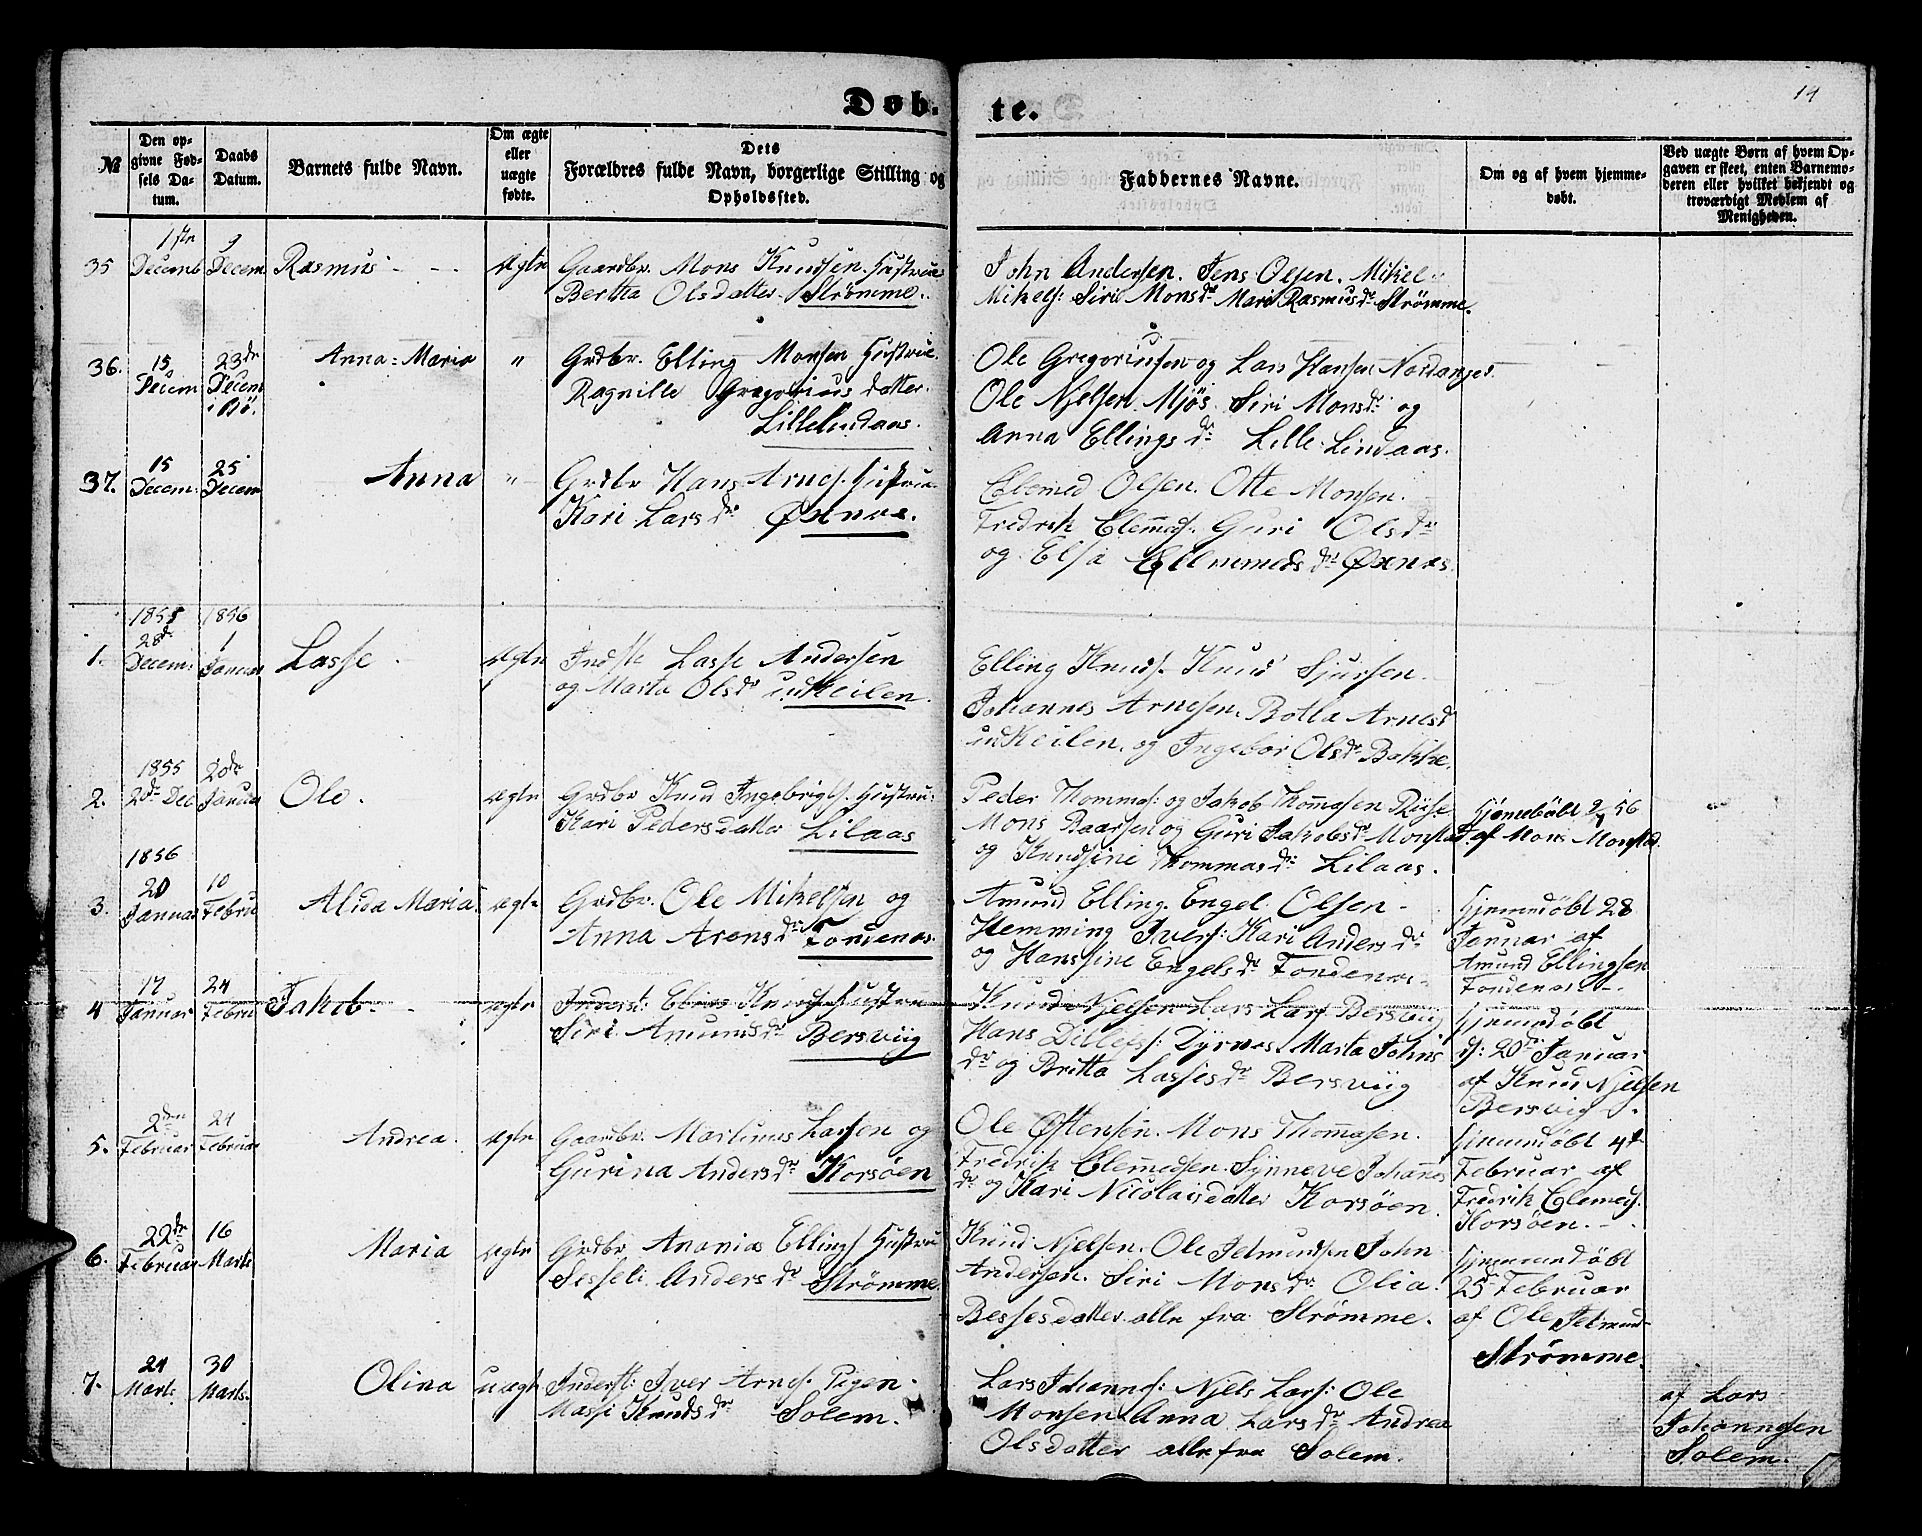 Døb-
te.
14
№
Den op-
givne Fød-
sels Da-
tum.
Daabs
Datum.
Barnets fulde Navn.
Om ægte
eller
uægte
fødte.
Dets
Forældres fulde Navn, borgerlige Stilling og
Opholdssted.
Faddernes Navne.
Om og af hvem hjemme-
døbt.
Ved uægte Børn af hvem Op-
gaven er skeet, enten Barnemo-
deren eller hvilket bekjendt og
troværdigt Medlem af
Menigheden.
35
1ste
Decemb
9
Decem
Rasmus
Ægte
Gaardbr. Mons Knudsen Hustrue
Bertha Olsdatter. Strømme.
John Andersen. Jens Olsen. Mikel
Mikels: Siri Monsdr Mari Rasmusdr Strømme.
36.
15
Decem
23de
Decem
i Bø.
Anna-Maria
"
Grdbr. Elling Monsen Hustrue.
Ragnille Gregorius datter.
Lillelindaas.
Ole Gregoriusen og Lars Hansen Nordanger.
Ole Njelsen Mjøs Siri Monsdr og
Anna Ellingsdr Lille-Lindaas.
37.
15
Decem.
25
Decem
Anna
"
Grdbr Hans Arnes. Hustrue
Kari Larsdr Øxnæs.
Clemed Olsen. Otte Monsen.
Fredrik Clemmets: Guri Olsdr
og Elsa Clemmedsdr Øxnæs.
1.
1855
28de
Decem:
1856
1
Januar
Lasse
Ægte
Indste Lasse Andersen
og Marta Olsdr udKeilen.
Elling Knuds. Knud Sjursen.
Johannes Arnesen. Botla Arnesd
udKeilen. og Ingebor Olsdr Bakke.
2.
1855
2de Dec
20de
Januar
Ole.
Ægte
Grdbr Knud Ingebrigts: Hustru:
Kari Pedersdatter Lilaas
Peder Thommas: og Jakob Thommasen Riise
Mons Baarsen og Guri Jakobsdr Monstad.
og Knudsine Thommasdr Lilaas.
Hjemedøbt 2/1 56
af Mons Monstad.
3.
1856
20
Januar
10
Febru
Alida Maria
Ægte
Grdbr. Ole Mikelsen og
Anna Arensdr Fondenæs.
Amund Elling. Engel Olsen
Hemming Ivers: Kari Andersdr
og Hanssine Engelsdr Fondenæs.
Hjemmedøbt 28
Januar af
Amund Ellingsen
Fondenæs
4
17
Januar
24
Febru
Jakob
Ægte
Inderst: Elias Knuds Hustru
Siri Amundsdr Bersviig
Knud Njelsen Lars Lars Bersviig
Hans Ditlefs: Dyrnes. Marta Johns
dr og Britta Lassesdr Bersviig
Hjemmedøbt
d: 20de Januar
af Knud Njelsen
Bersvig
5.
2den
Februar
24
Februar
Andrea.
Ægte
Gaardbr. Martinus Larsen og
Gurina Andersdr Korsøen
Ole Østensen. Mons Thommasen.
Fredrik Clemmedsen. Synneve Johannes
dr og Kari Nicolaisdatter Korsøen.
Hjemmedøbt 4d
Februar af
Fredrik Clemeds.
Korsøen.
6.
22de
Februar
16
Marts
Maria
Ægte
Grdbr. Ananias Ellings Hustru
Sesseli Andersdr Strømme
Knud Njelsen. Ole Jetmundsen John
Andersen. Siri Monsdr Olia
Bessesdatter alle fra Strømme.
Hjemmedøbt
25de Februar
af Ole Jetmund-
Strømme.
7.
24
Marts
30
Marts.
Olina
uægte
Inderst: Iver Arnes. Pigen
Massi Knudsdr Solem.
Lars Johannes: Njels Lars: Ole
Monsen. Anna Larsdr Andrea
Olsdatter alle fra Solem.
af Lars
Johannesen
Solem.